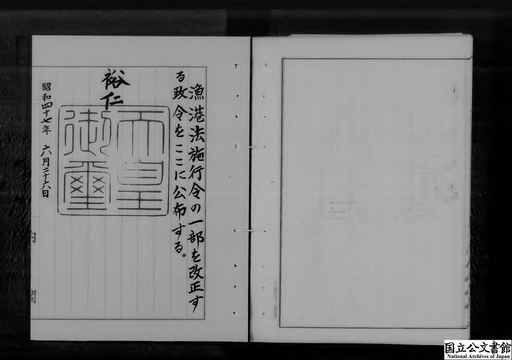 漁港法施行令の一部を改正す
る政令をここに公布する。
裕仁
天皇
御璽
昭和四十七年 六月二十六日
内
閣
国立公文書館
National Archives of Japan